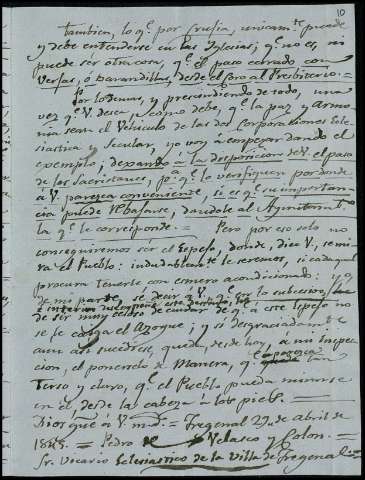 10
tambien, lo q.e por Crujia, unicam.te puede
y debe entenderse en las Iglesias; q.e no es, ni
puede ser otra cosa, q.e el paso cerrado con
Verjas, ó barandillas, desde el Coro al Presbiterio. =
Por lo demas, y prescindiendo de todo, una
vez q.e V. desea, como debe, q.e la paz y Armo-
nia sean el Vehiculo de las dos Corporaciones Ecle-
siastica y Secular, yo voy á empezar dando el
exemplo; dexando á la disposicion de V. el paso
de los Sacristanes, p.a q.e le verifiquen por donde
á V. paresca conveniente, si es q.e su importan-
cia puede rebajarse, dandole al Ayuntam.to
la q.e le corresponde. = Pero por eso solo no
conseguiremos ser el Espejo, donde, dice V., se mi-
ra el Pueblo: indudablem.te le seremos, si cada qual
procura tenerle con esmero acondicionado: y
de mi parte, sé decir á V. q.e
de ser muy celoso de cuidar de q.e á este Espejo no
se le caiga el Azogue; y si desgraciadam.te
aun asi sucediese, queda, desde hoy, á su inspec-
cion, el ponerelo de Manera, q.e aparezca tan
Terso y claro, q.e el Pueblo pueda mirarse
en él desde la cabeza á los pies. =
Dios gue á V. m.s a.s = Fregenal 29 de Abril de
1845. = Pedro de Velasco y Colon. =
Sr. Vicario Eclesiastico de la Villa de Fregenal =